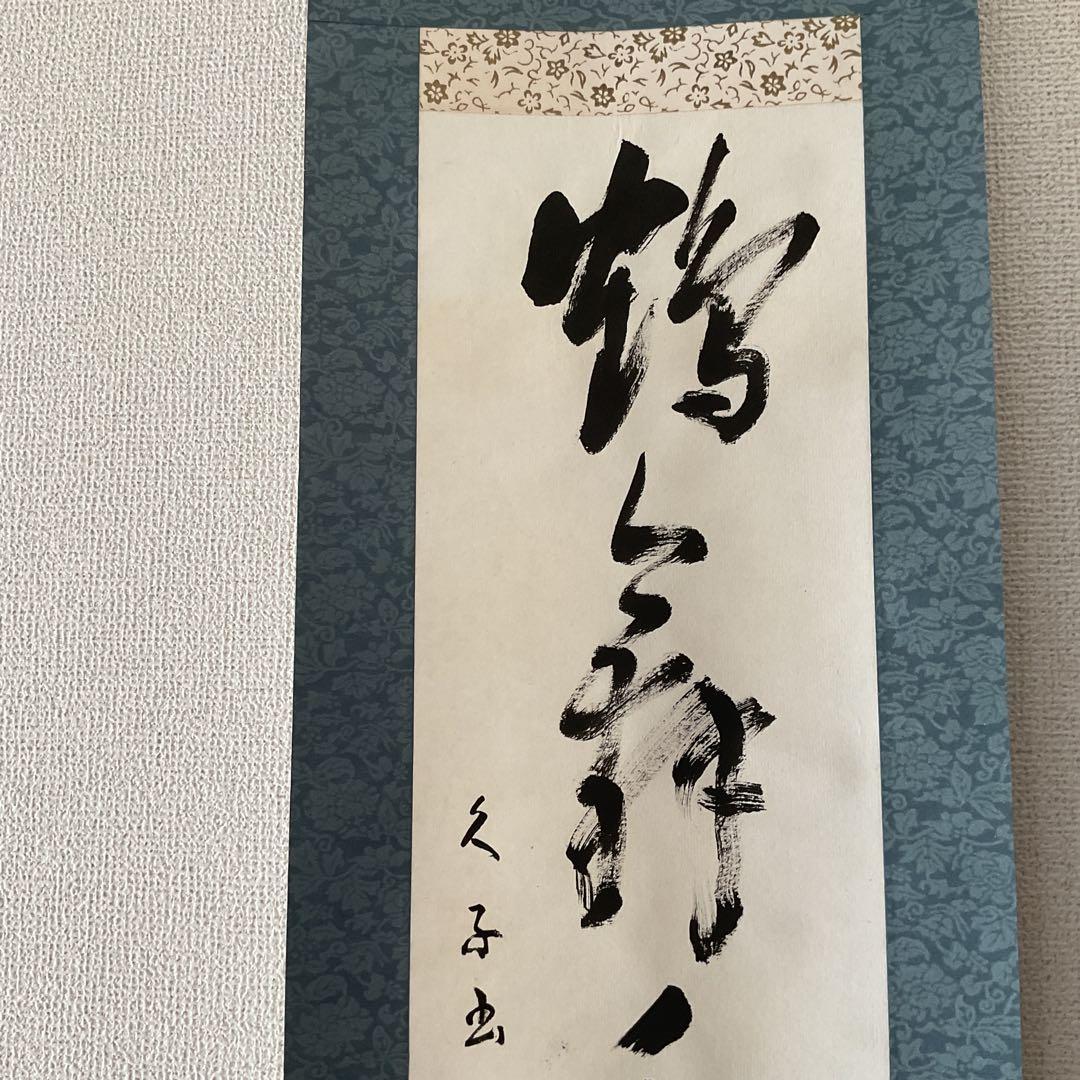 鶴舞
久子書